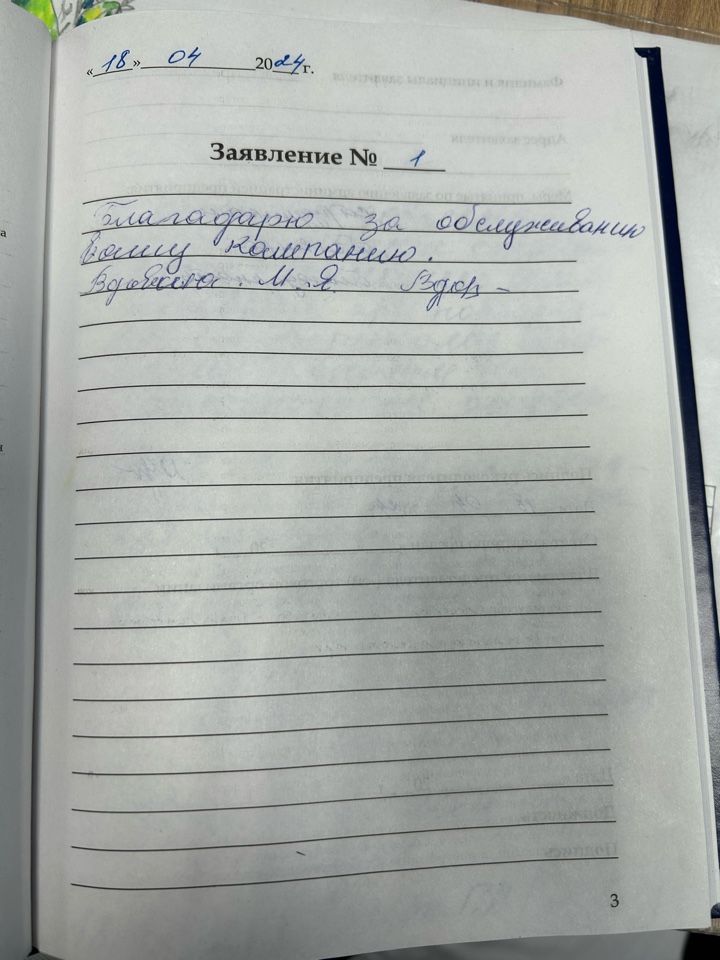 «18» 04 2024 г.
Заявление № 1
Благодарю за обслуживанию
Вашу компанию.
М. Я. Вдов
3